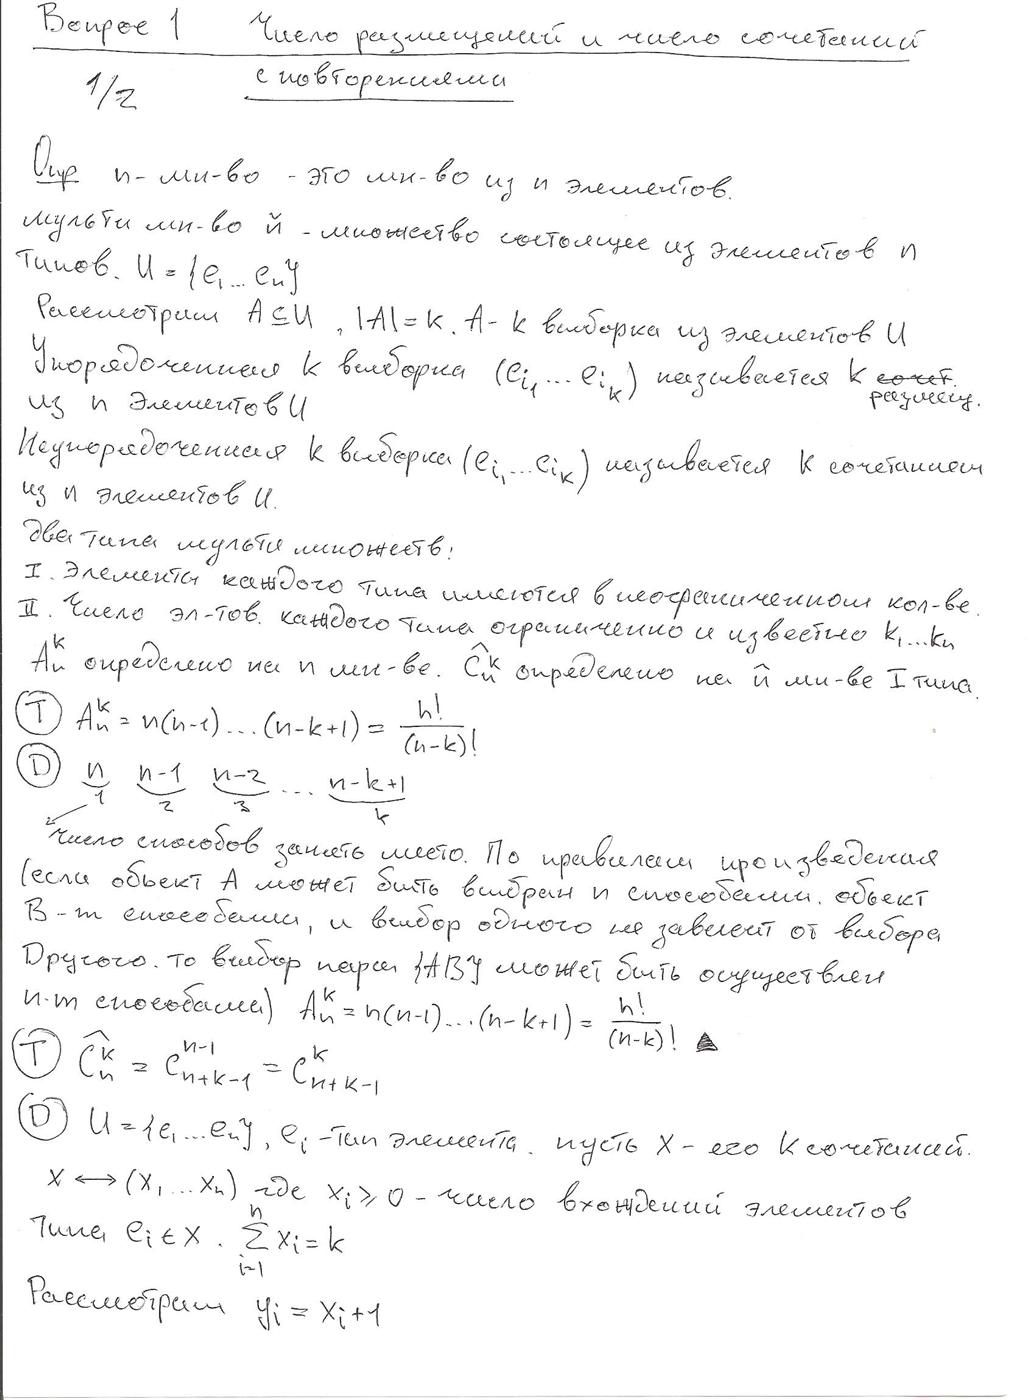 Вопрос 1 Число размещений и число сочетаний
с повторениями
1/2
Опр n-мн-во - это мн-во из n элементов.
мульти мн-во n̂ - множество состоящее из элементов n
типов. U = {e₁...eₙ}
Рассмотрим A⊆U, |A|=k. A - k выборка из элементов U
Упорядоченная k выборка (eᵢ₁...eᵢₖ) называется k сочет.
размещ.
из n элементов U
Неупорядоченная k выборка (eᵢ₁...eᵢₖ) называется k сочетанием
из n элементов U.
Два типа мульти множеств:
I. Элементы каждого типа имеются в неограниченном кол-ве.
II. Число эл-тов. каждого типа ограниченно и известно k₁...kₙ
Aₙᵏ определено на n мн-ве. Ĉₙᵏ определено на n̂ мн-ве I типа.
(T) Aₙᵏ = n(n-1)...(n-k+1) = n!/(n-k)!
(D) n n-1 n-2 ... n-k+1
1 2 3 k
число способов занять место. По правилам произведения
(если объект A может быть выбран n способами. объект
B - m способами, и выбор одного не зависит от выбора
Другого. то выбор пары {AB} может быть осуществлен
n·m способами) Aₙᵏ = n(n-1)...(n-k+1) = n!/(n-k)! ▲
(T) Ĉₙᵏ = Cₙ₊ₖ₋₁ⁿ⁻¹ = Cₙ₊ₖ₋₁ᵏ
(D) U = {e₁...eₙ}, eᵢ - тип элемента. пусть X - его k сочетаний.
X ↔ (x₁...xₙ) где xᵢ ⩾ 0 - число вхождений элементов
Типа eᵢ ∈ X. ∑ᵢ₌₁ⁿ xᵢ = k
Рассмотрим yᵢ = xᵢ+1